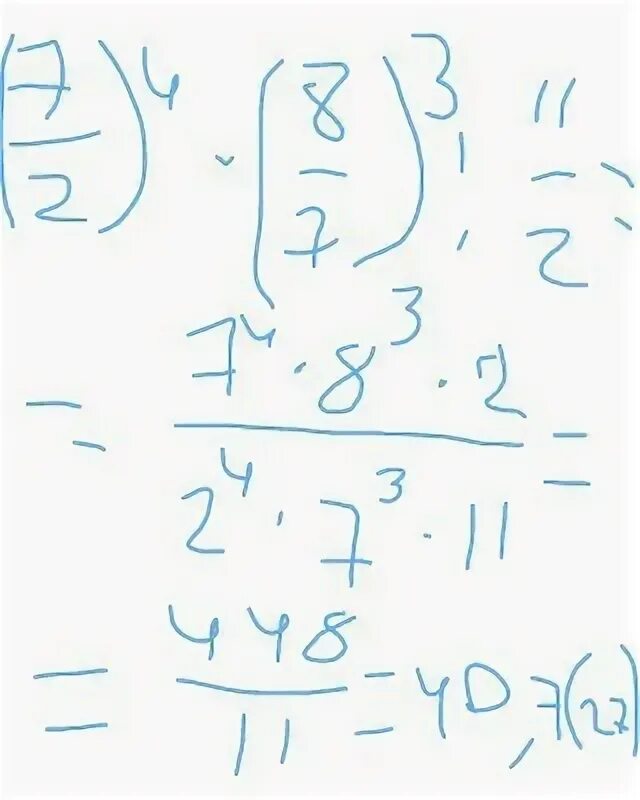 (7/2)^4 · (8/7)^3 : 11/2 =
= (7^4 · 8^3 · 2)/(2^4 · 7^3 · 11) =
= 448/11 = 40,7(27)